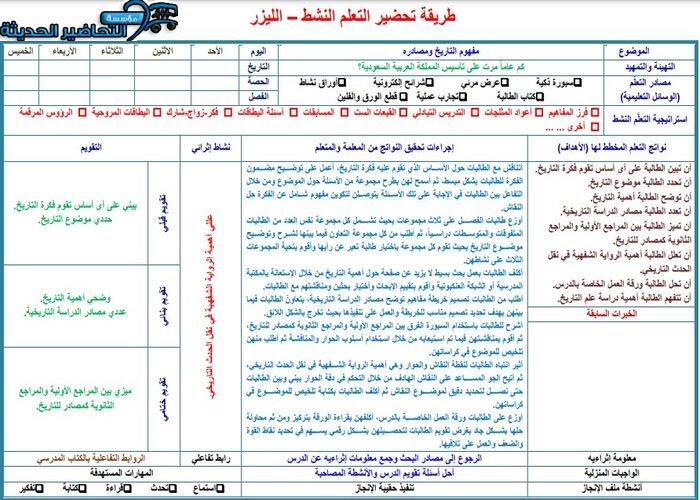 طريقة تحضير التعلم النشط – الليزر
مؤسسة
التحاضير الحديثة
الموضوع
مفهوم التاريخ ومصادره
اليوم
الأحد
الاثنين
الثلاثاء
الأربعاء
الخميس
التهيئة والتمهيد
كم عاماً مرت على تأسيس المملكة العربية السعودية؟
التاريخ
مصادر التعلم
(الوسائل التعليمية)
سبورة ذكية
عرض مرئي
شرائح إلكترونية
أوراق نشاط
الحصة
كتاب الطالبة
تجارب عملية
قطع الورق والفلين
الفصل
استراتيجية التعلّم النشط
فرز المفاهيم
أعواد المثلجات
التدريس التبادلي
القبعات الست
المسابقات
أسئلة البطاقات
فكر-زواج-شارك
البطاقات المروحية
الرؤوس المرقمة
أخرى ... ...
نواتج التعلم المخطط لها (الأهداف)
إجراءات تحقيق النواتج من المعلمة والمتعلم
نشاط إثرائي
التقويم
أن تبين الطالبة على أي أساس تقوم فكرة التاريخ.
أن تحدد الطالبة موضوع التاريخ.
أن توضح الطالبة أهمية التاريخ.
أن تعدد الطالبة مصادر الدراسة التاريخية.
أن تميز الطالبة بين المراجع الأولية والمراجع
الثانوية كمصادر للتاريخ.
أن توضح الطالبة أهمية الرواية الشفهية في نقل
الحدث التاريخي.
أن تحل الطالبة ورقة العمل الخاصة بالدرس.
أن تتفهم الطالبة أهمية دراسة علم التاريخ.
الخبرات السابقة
أناقش مع الطالبات حول الأساس الذي تقوم عليه فكرة التاريخ، أعمل على توضيح مضمون
الفكرة للطالبات بشكل مبسط، ثم أسمح لهن بطرح مجموعة من الأسئلة حول الموضوع ومن خلال
التفاعل بين الطالبات في الإجابة على تلك الأسئلة يتوصلن لتكوين مفهوم شامل عن الفكرة حل
النقاش.
أوزع طالبات الفصل على ثلاث مجموعات بحيث تشمل كل مجموعة نفس العدد من الطالبات
المتفوقات والمتوسطات دراسياً، ثم أطلب من كل مجموعة التعاون فيما بينها لشرح وتوضيح
موضوع التاريخ بحيث تقوم كل مجموعة باختيار طالبة تعبر عن رأيها وأقوم بتحية المجموعات
الثلاث على نشاطهن.
أكلف الطالبات بعمل بحث بسيط لا يزيد عن صفحة حول أهمية التاريخ من خلال الاستعانة بالمكتبة
المدرسية أو الشبكة العنكبوتية وأقوم بتقييم الإبحاث وأختيار بحثين ومناقشتهم مع الطالبات.
أطلب من الطالبات تصميم خريطة مفاهيم توضح مصادر الدراسة التاريخية، يتعاون الطالبات فيما
بينهم بهدف تحديد تصميم مناسب للخريطة والعمل على تنفيذها بحيث تخرج بالشكل اللائق.
أشرح للطالبات باستخدام السبورة الفرق بين المراجع الأولية والمراجع الثانوية كمصادر للتاريخ،
ثم أقوم بمناقشتهن فيما تم استيعابه من خلال استخدام أسلوب الحوار والمناقشة ثم أطلب منهن
تلخيص للموضوع في كراساتهن.
أثير انتباه الطالبات لنقطة النقاش والحوار وهي أهمية الرواية الشفهية في نقل الحدث التاريخي،
ثم أتيح الجو المساعد على النقاش الهادف من خلال التحكم في دفة الحوار بيني وبين الطالبات
حتى نصل لتحديد دقيق لموضوع النقاش ثم أكلف الطالبات بكتابة تلخيص للموضوع في
كراساتهن.
أوزع على الطالبات ورقة العمل الخاصة بالدرس، أكلفهن بقراءة الورقة بتركيز ومن ثم محاولة
حلها بشكل جاد بغرض تقويم الطالبات لتحصيلهن بشكل رقمي يسهم في تحديد نقاط القوة
والضعف والعمل على تلافيها.
عللي أهمية الرواية الشفهية في نقل الحدث التاريخي.
تقويم قبلي
بيني على أي أساس تقوم فكرة التاريخ.
حددي موضوع التاريخ.
تقويم بنائي
وضحي أهمية التاريخ.
عددي مصادر الدراسة التاريخية.
تقويم ختامي
ميزي بين المراجع الأولية والمراجع
الثانوية كمصادر للتاريخ.
معلومة إثرائية
الرجوع إلى مصادر البحث وجمع معلومات إثرائيه عن الدرس
رابط تفاعلي
الروابط التفاعلية بالكتاب المدرسي
الواجبات المنزلية
أحل أسئلة تقويم الدرس والأنشطة المصاحبة
المهارات المستهدفة
أنشطة ملف الإنجاز
تنفيذ حقيبة الإنجاز
استماع
تحدث
قراءة
كتابة
تفكير